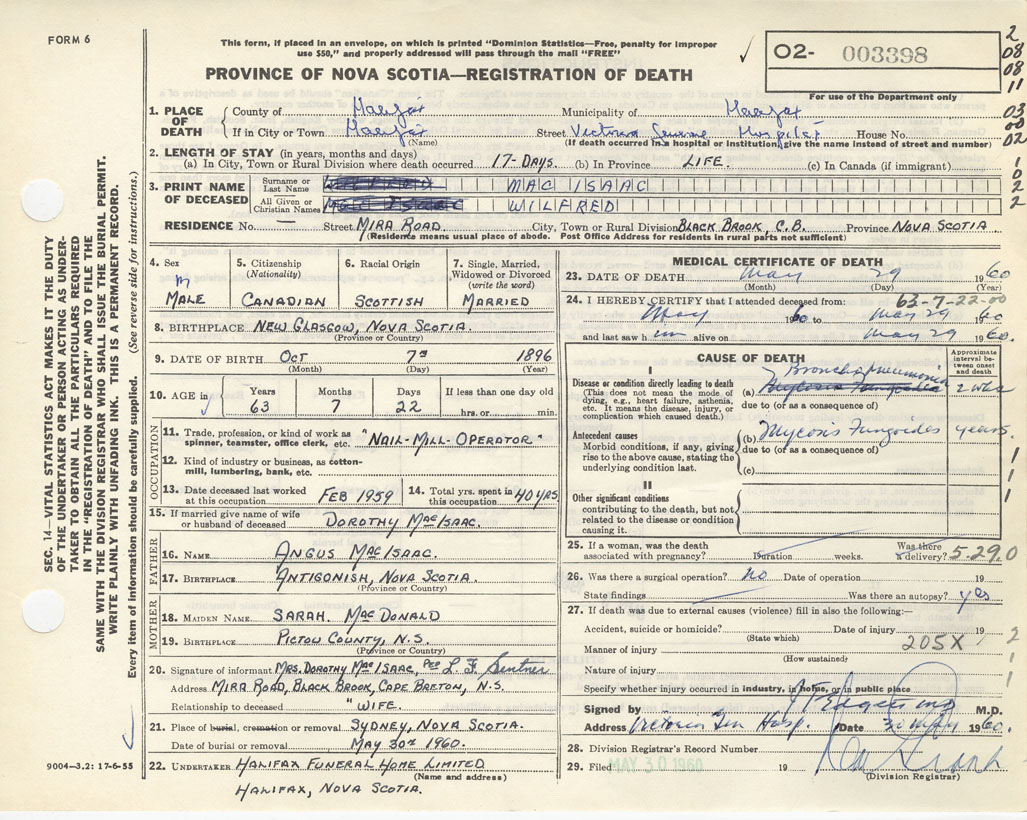 FORM 6
This form, if placed in an envelope, on which is printed "Dominion Statistics—Free, penalty for improper
use $50," and properly addressed will pass through the mail "FREE"
✓
O2- 003398
For use of the Department only
2
08
08
11
03
00
02
1
0
2
2
PROVINCE OF NOVA SCOTIA—REGISTRATION OF DEATH
1. PLACE OF DEATH
County of Halifax Municipality of Halifax
If in City or Town Halifax Street Victoria General Hospital House No.
(Name) (If death occurred in a hospital or institution, give the name instead of street and number)
2. LENGTH OF STAY (in years, months and days)
(a) In City, Town or Rural Division where death occurred 17-DAYS. (b) In Province LIFE. (c) In Canada (if immigrant)
3. PRINT NAME OF DECEASED
Surname or Last Name MAC ISAAC
All Given or Christian Names WILFRED
RESIDENCE No. — Street MIRA ROAD. City, Town or Rural Division BLACK BROOK, C.B. Province NOVA SCOTIA
(Residence means usual place of abode. Post Office Address for residents in rural parts not sufficient)
4. Sex
m
MALE
5. Citizenship
(Nationality)
CANADIAN
6. Racial Origin
SCOTTISH
7. Single, Married, Widowed or Divorced
(write the word)
MARRIED
8. BIRTHPLACE NEW GLASGOW, NOVA SCOTIA.
(Province or Country)
9. DATE OF BIRTH OCT 7th 1896
(Month) (Day) (Year)
10. AGE in
Years Months Days If less than one day
63 7 22 hrs. or min.
OCCUPATION
11. Trade, profession, or kind of work as spinner, teamster, office clerk, etc. "NAIL-MILL-OPERATOR"
12. Kind of industry or business, as cotton-mill, lumbering, bank, etc.
13. Date deceased last worked at this occupation FEB 1959
14. Total yrs. spent in this occupation 40 YRS
15. If married give name of wife or husband of deceased DOROTHY MACISAAC.
FATHER
16. NAME ANGUS MACISAAC.
17. BIRTHPLACE ANTIGONISH, NOVA SCOTIA.
(Province or Country)
MOTHER
18. MAIDEN NAME SARAH. MACDONALD
19. BIRTHPLACE PICTOU COUNTY, N.S.
(Province or Country)
20. Signature of informant MRS. DOROTHY MACISAAC, PER L. F.
Address MIRA ROAD, BLACK BROOK, CAPE BRETON, N.S.
Relationship to deceased "WIFE.
21. Place of burial, cremation or removal SYDNEY, NOVA SCOTIA.
Date of burial or removal MAY 30th 1960.
22. UNDERTAKER HALIFAX FUNERAL HOME LIMITED
(Name and address)
HALIFAX, NOVA SCOTIA.
MEDICAL CERTIFICATE OF DEATH
23. DATE OF DEATH May 29 1960
(Month) (Day) (Year)
24. I HEREBY CERTIFY that I attended deceased from: 63-7-22-00
May 1960 to May 29 1960
and last saw h im alive on May 29 1960.
CAUSE OF DEATH
Approximate interval between onset and death
I
Disease or condition directly leading to death
(This does not mean the mode of dying, e.g., heart failure, asthenia, etc. It means the disease, injury, or complication which caused death.)
Bronchopneumonia
(a) Mycosis Fungoides 2 wks
due to (or as a consequence of)
Antecedent causes
Morbid conditions, if any, giving rise to the above cause, stating the underlying condition last.
(b) Mycosis Fungoides years.
due to (or as a consequence of)
(c)
II
Other significant conditions
contributing to the death, but not related to the disease or condition causing it.
1
1
1
25. If a woman, was the death associated with pregnancy? Duration weeks. Was there a delivery? 5-29.0
26. Was there a surgical operation? no Date of operation 19
State findings Was there an autopsy? yes
27. If death was due to external causes (violence) fill in also the following:—
Accident, suicide or homicide? Date of injury 19
(State which)
Manner of injury 205X
(How sustained)
Nature of injury
2
1
1
Specify whether injury occurred in industry, in home, or in public place
Signed by M.D.
Address Victoria Gen Hosp. Date 30 May 1960.
28. Division Registrar's Record Number
29. Filed MAY 30 1960 19
(Division Registrar)
SEC. 14—VITAL STATISTICS ACT MAKES IT THE DUTY
OF THE UNDERTAKER OR PERSON ACTING AS UNDER-
TAKER TO OBTAIN ALL THE PARTICULARS REQUIRED
IN THE "REGISTRATION OF DEATH" AND TO FILE THE
SAME WITH THE DIVISION REGISTRAR WHO SHALL ISSUE THE BURIAL PERMIT.
WRITE PLAINLY WITH UNFADING INK. THIS IS A PERMANENT RECORD.
Every item of information should be carefully supplied. (See reverse side for instructions.)
9004-3.2: 17-6-55